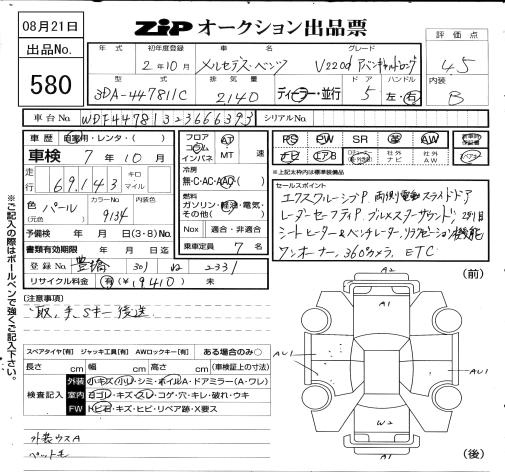 08月21日
出品No.
580
ZIP オークション出品票
評価点
4.5
内装
B
年式
初年度登録
車名
グレード
2年10月
メルセデス・ベンツ
V220d アバンギャルドロング
型式
排気量
ドア
ハンドル
3DA-447811C
2140
ディーラー・並行
5
左・右
車台No.
WDF44781323666393
シリアルNo.
車歴
自家用・レンタ・( )
車検 7年10月
走行
69,143
キロ
マイル
色(元色)
パール
カラーNo.
9134
内装色
予備検 年 月 日(3・8)No.
書類有効期限 年 月 日迄
登録No. 豊橋 301 は 2331
リサイクル料金 有(¥19410) 未
フロア
コラム
インパネ
AT
MT
速
冷房
無・C・AC・AAC・( )
燃料
ガソリン・軽油・電気・その他( )
Nox 適合・非適合
乗車定員 7名
PS
PW
SR
革
AW
ナビ
エアB
社外ナビ
社外AW
※上記太枠内は標準装備品
セールスポイント
エクスクルーシブP 両側電動スライドドア
レーダーセーフティP ブルメスターサウンド 2列目
シートヒーター&ベンチレーター,リラクゼーション機能
ワンオーナー,360°カメラ,ETC
[注意事項]
取,手,Sキー後送
スペアタイヤ[有] ジャッキ工具[有] AWロックキー[有] ある場合のみ○
長さ cm 幅 cm 高さ cm (車検証上の寸法)
検査記入
外装 小キズ・小凹・シミ・ホイルA・ドアミラー(A・ワレ)
室内 ヨゴレ・キズ・スレ・コゲ・穴・キレ・破れ・ウキ
FW トビ石・キズ・ヒビ・リペア跡・X要ス
外装ウスA
ペット毛
A2
(前)
A1
AU1
AU1
W2
A1
(後)
※ご記入の際はボールペンで強くご記入下さい。